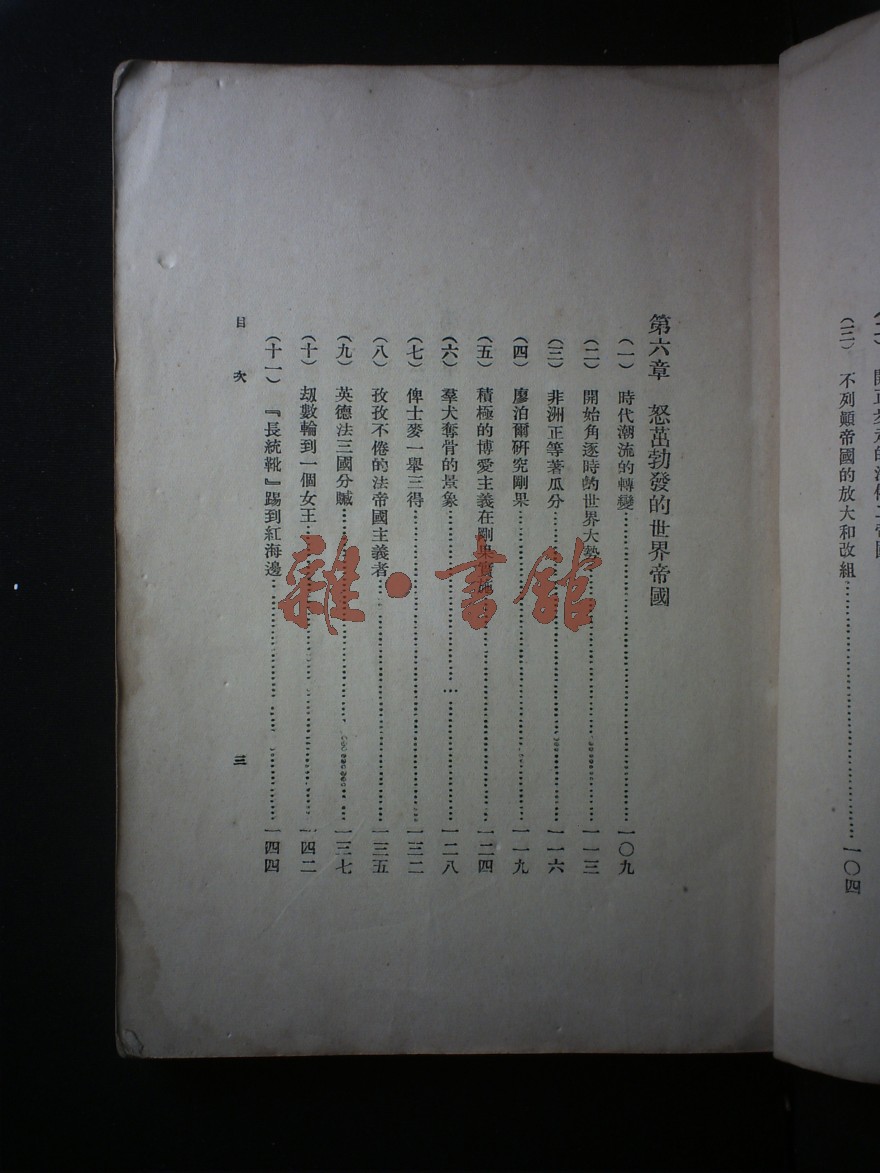 (三) 不列顛帝國的放大和改組 一〇四
第六章 怒茁勃發的世界帝國
(一) 時代潮流的轉變 一〇九
(二) 開始角逐時的世界大勢 一一三
(三) 非洲正等著瓜分 一一六
(四) 廖泊爾研究剛果 一一九
(五) 積極的博愛主義在剛果實施 一二四
(六) 羣犬奪骨的景象 一二八
(七) 俾士麥一舉三得 一三二
(八) 孜孜不倦的法帝國主義者 一三五
(九) 英德法三國分贓 一三七
(十) 刼數輪到一個女王 一四二
(十一) 『長統靴』踢到紅海邊 一四四
目次 三
雜·書館